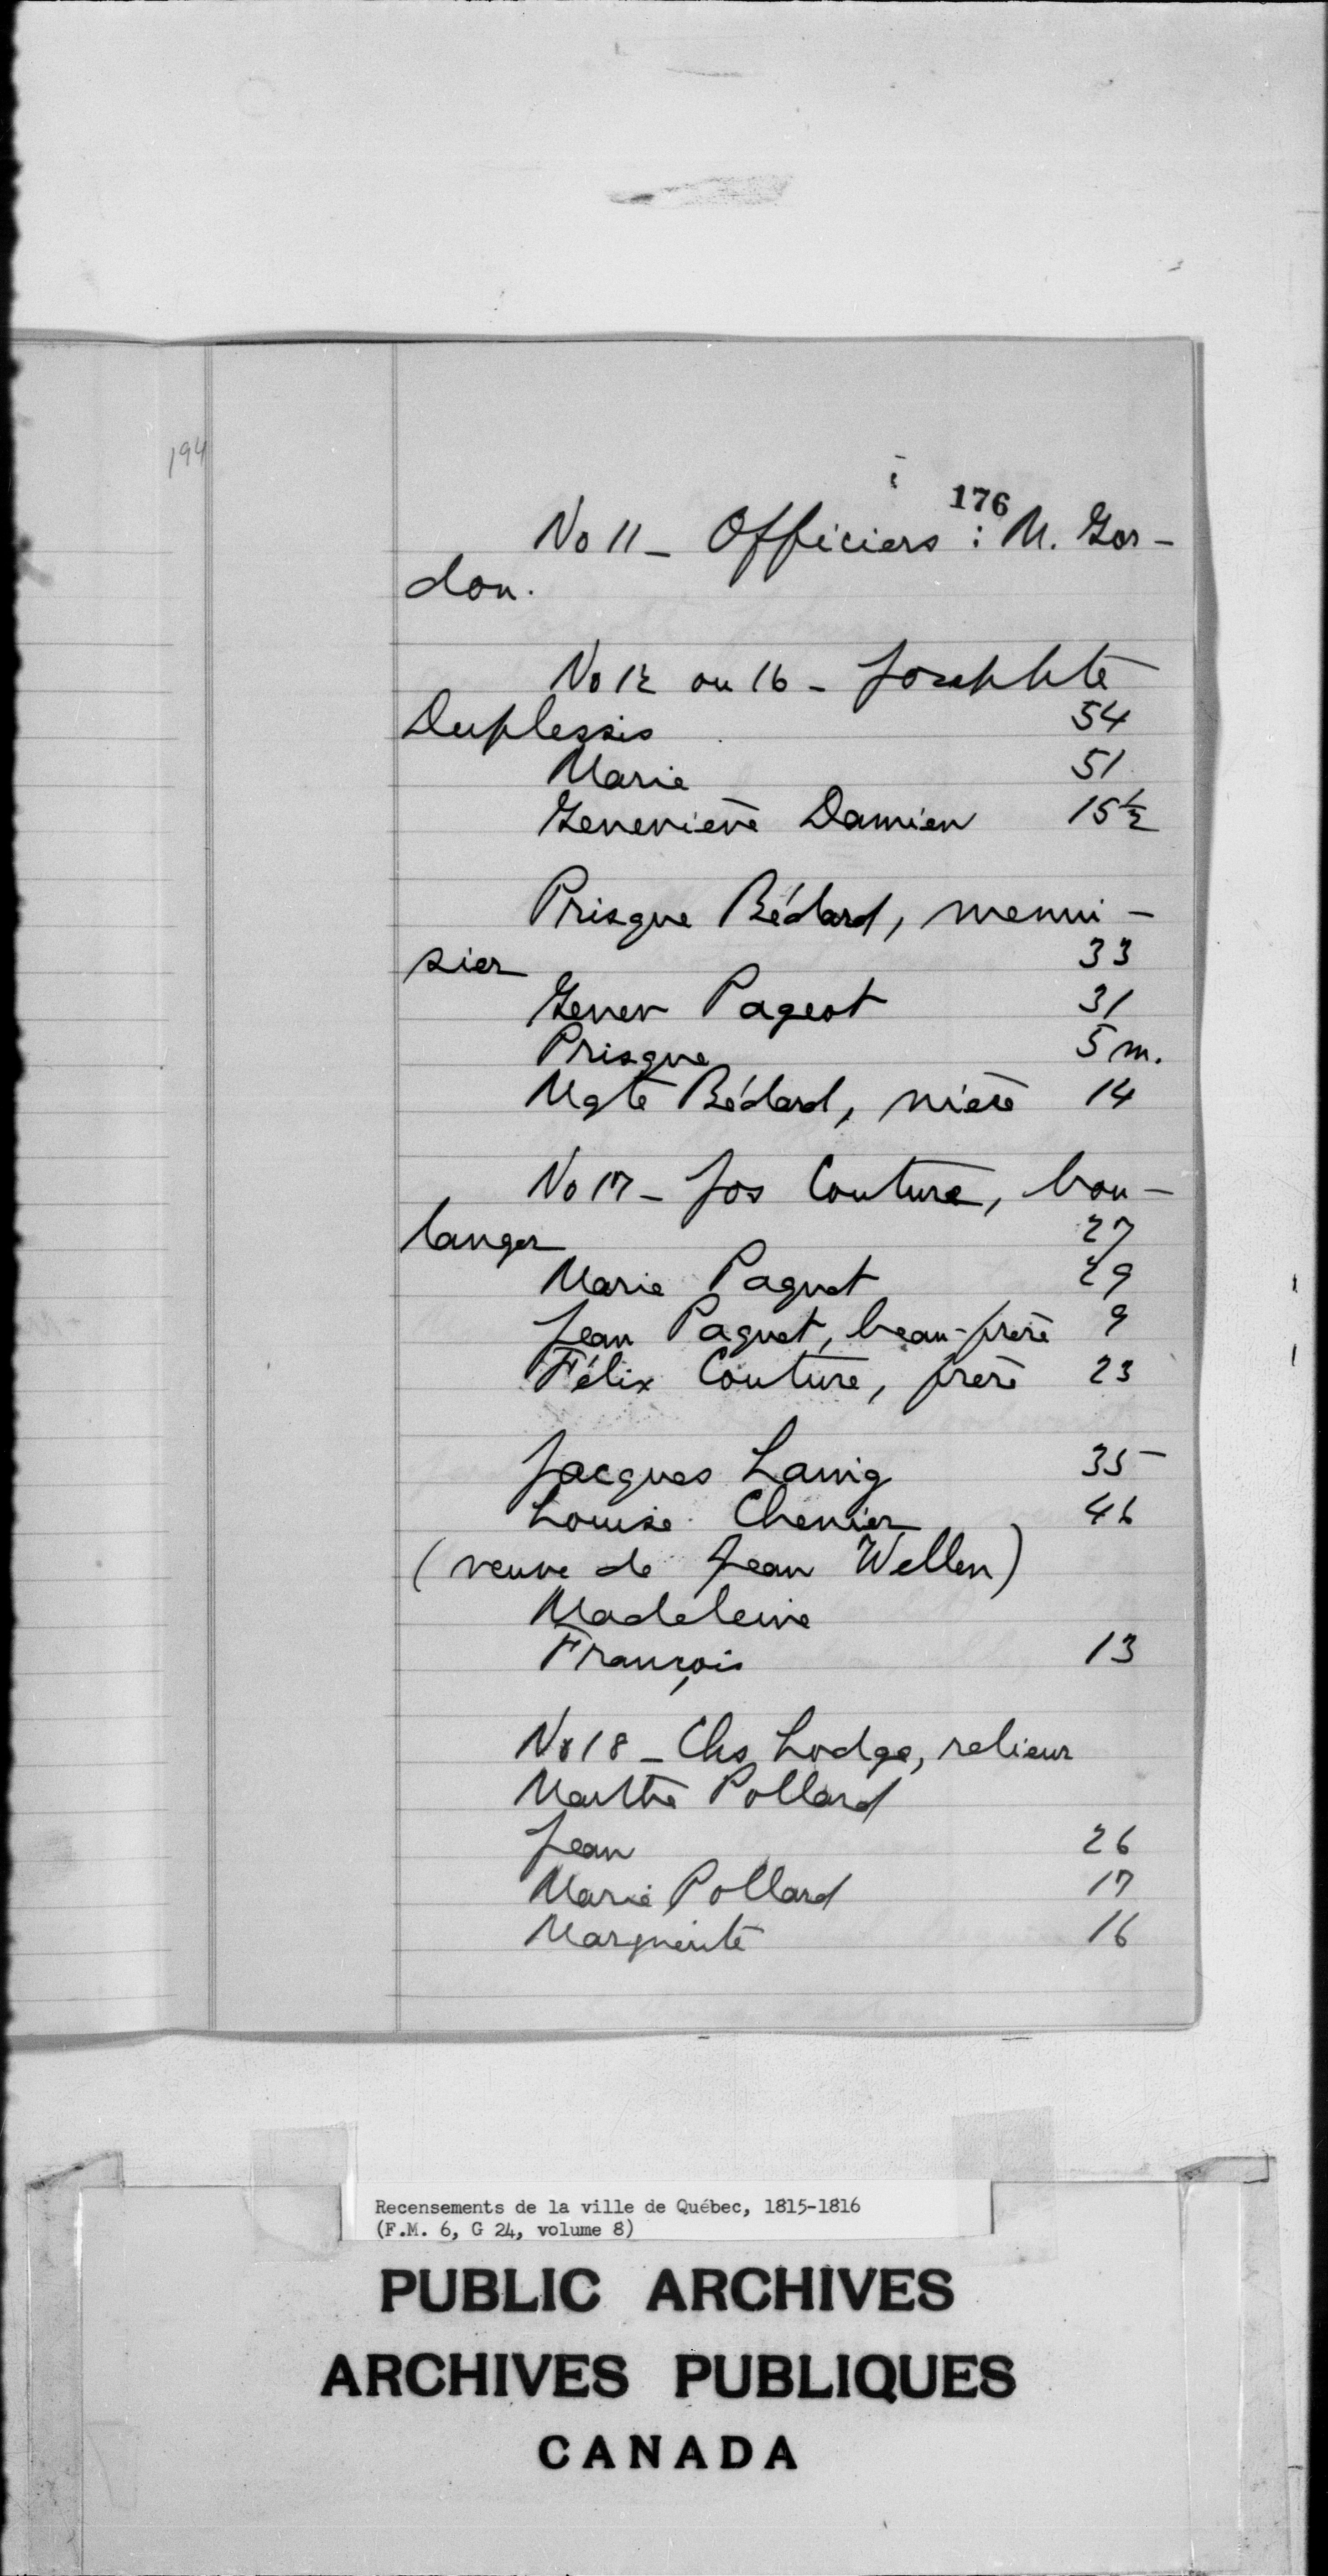 194
176
No 11 - Officiers : M. Gor-
don.
No 12 ou 16 - Josephte
Duplessis 54
Marie 51
Geneviève Damien 15½
Prisque Bédard, menui-
sier 33
Genev Pageot 31
Prisque 5 m.
Mgte Bédard, nièce 14
No 17 - Jos Couture, bou-
langer 27
Marie Paquet 29
Jean Paquet, beau-frère 9
Félix Couture, frère 23
Jacques Lannig 35
Louise Chenier 46
(veuve de Jean Wellen)
Madeleine
François 13
No 18 - Chs Lodge, relieur
Marthe Pollard
Jean 26
Marie Pollard 17
Marguerite 16
Recensements de la ville de Québec, 1815-1816
(F.M. 6, G 24, volume 8)
PUBLIC ARCHIVES
ARCHIVES PUBLIQUES
CANADA